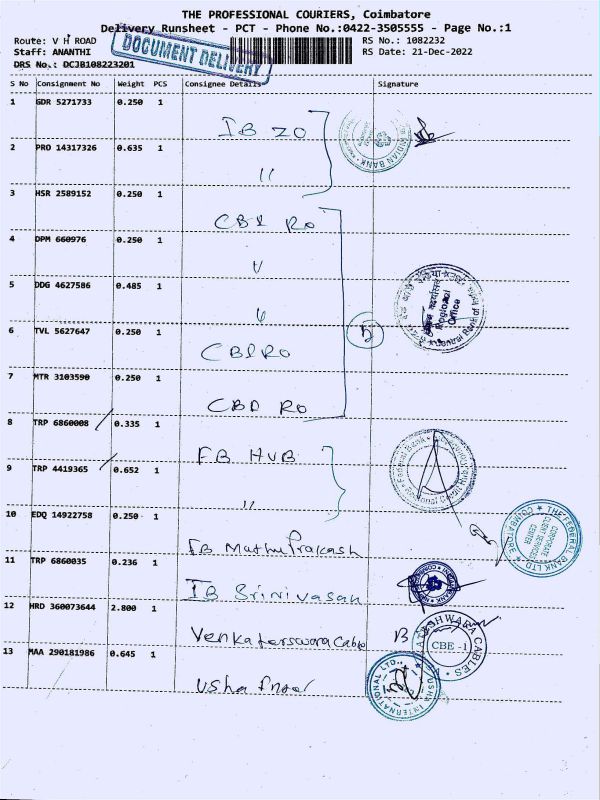 THE PROFESSIONAL COURIERS, Coimbatore
Delivery Runsheet - PCT - Phone No.:0422-3505555 - Page No.:1
Route: V H ROAD
RS No.: 1082232
Staff: ANANTHI
RS Date: 21-Dec-2022
DRS No.: DCJB108223201
DOCUMENT DELIVERY
S No Consignment No Weight PCS Consignee Details Signature
1 GDR 5271733 0.250 1
IB ZO
INDIAN BANK
2 PRO 14317326 0.635 1
"
3 HSR 2589152 0.250 1
CBI RO
4 DPM 660976 0.250 1
5 DDG 4627586 0.485 1
Regional
Office
Central Bank of
5
6 TVL 5627647 0.250 1
CBI RO
7 MTR 3103590 0.250 1
CBD RO
8 TRP 6860008 0.335 1
FB HUB
Federal Bank
9 TRP 4419365 0.652 1
"
10 EDQ 14922758 0.250 1
FB Muthu Prakash
THE FEDERAL BANK LTD.
COIMBATORE
CORPORATE
CLIENT SERVICES
CENTER
11 TRP 6860035 0.236 1
IB Srinivasan
12 HRD 360073644 2.800 1
Venkateswara Cable
CABLES
CBE - 1
13 MAA 290181986 0.645 1
Usha
USHA INTERNATIONAL LTD.,